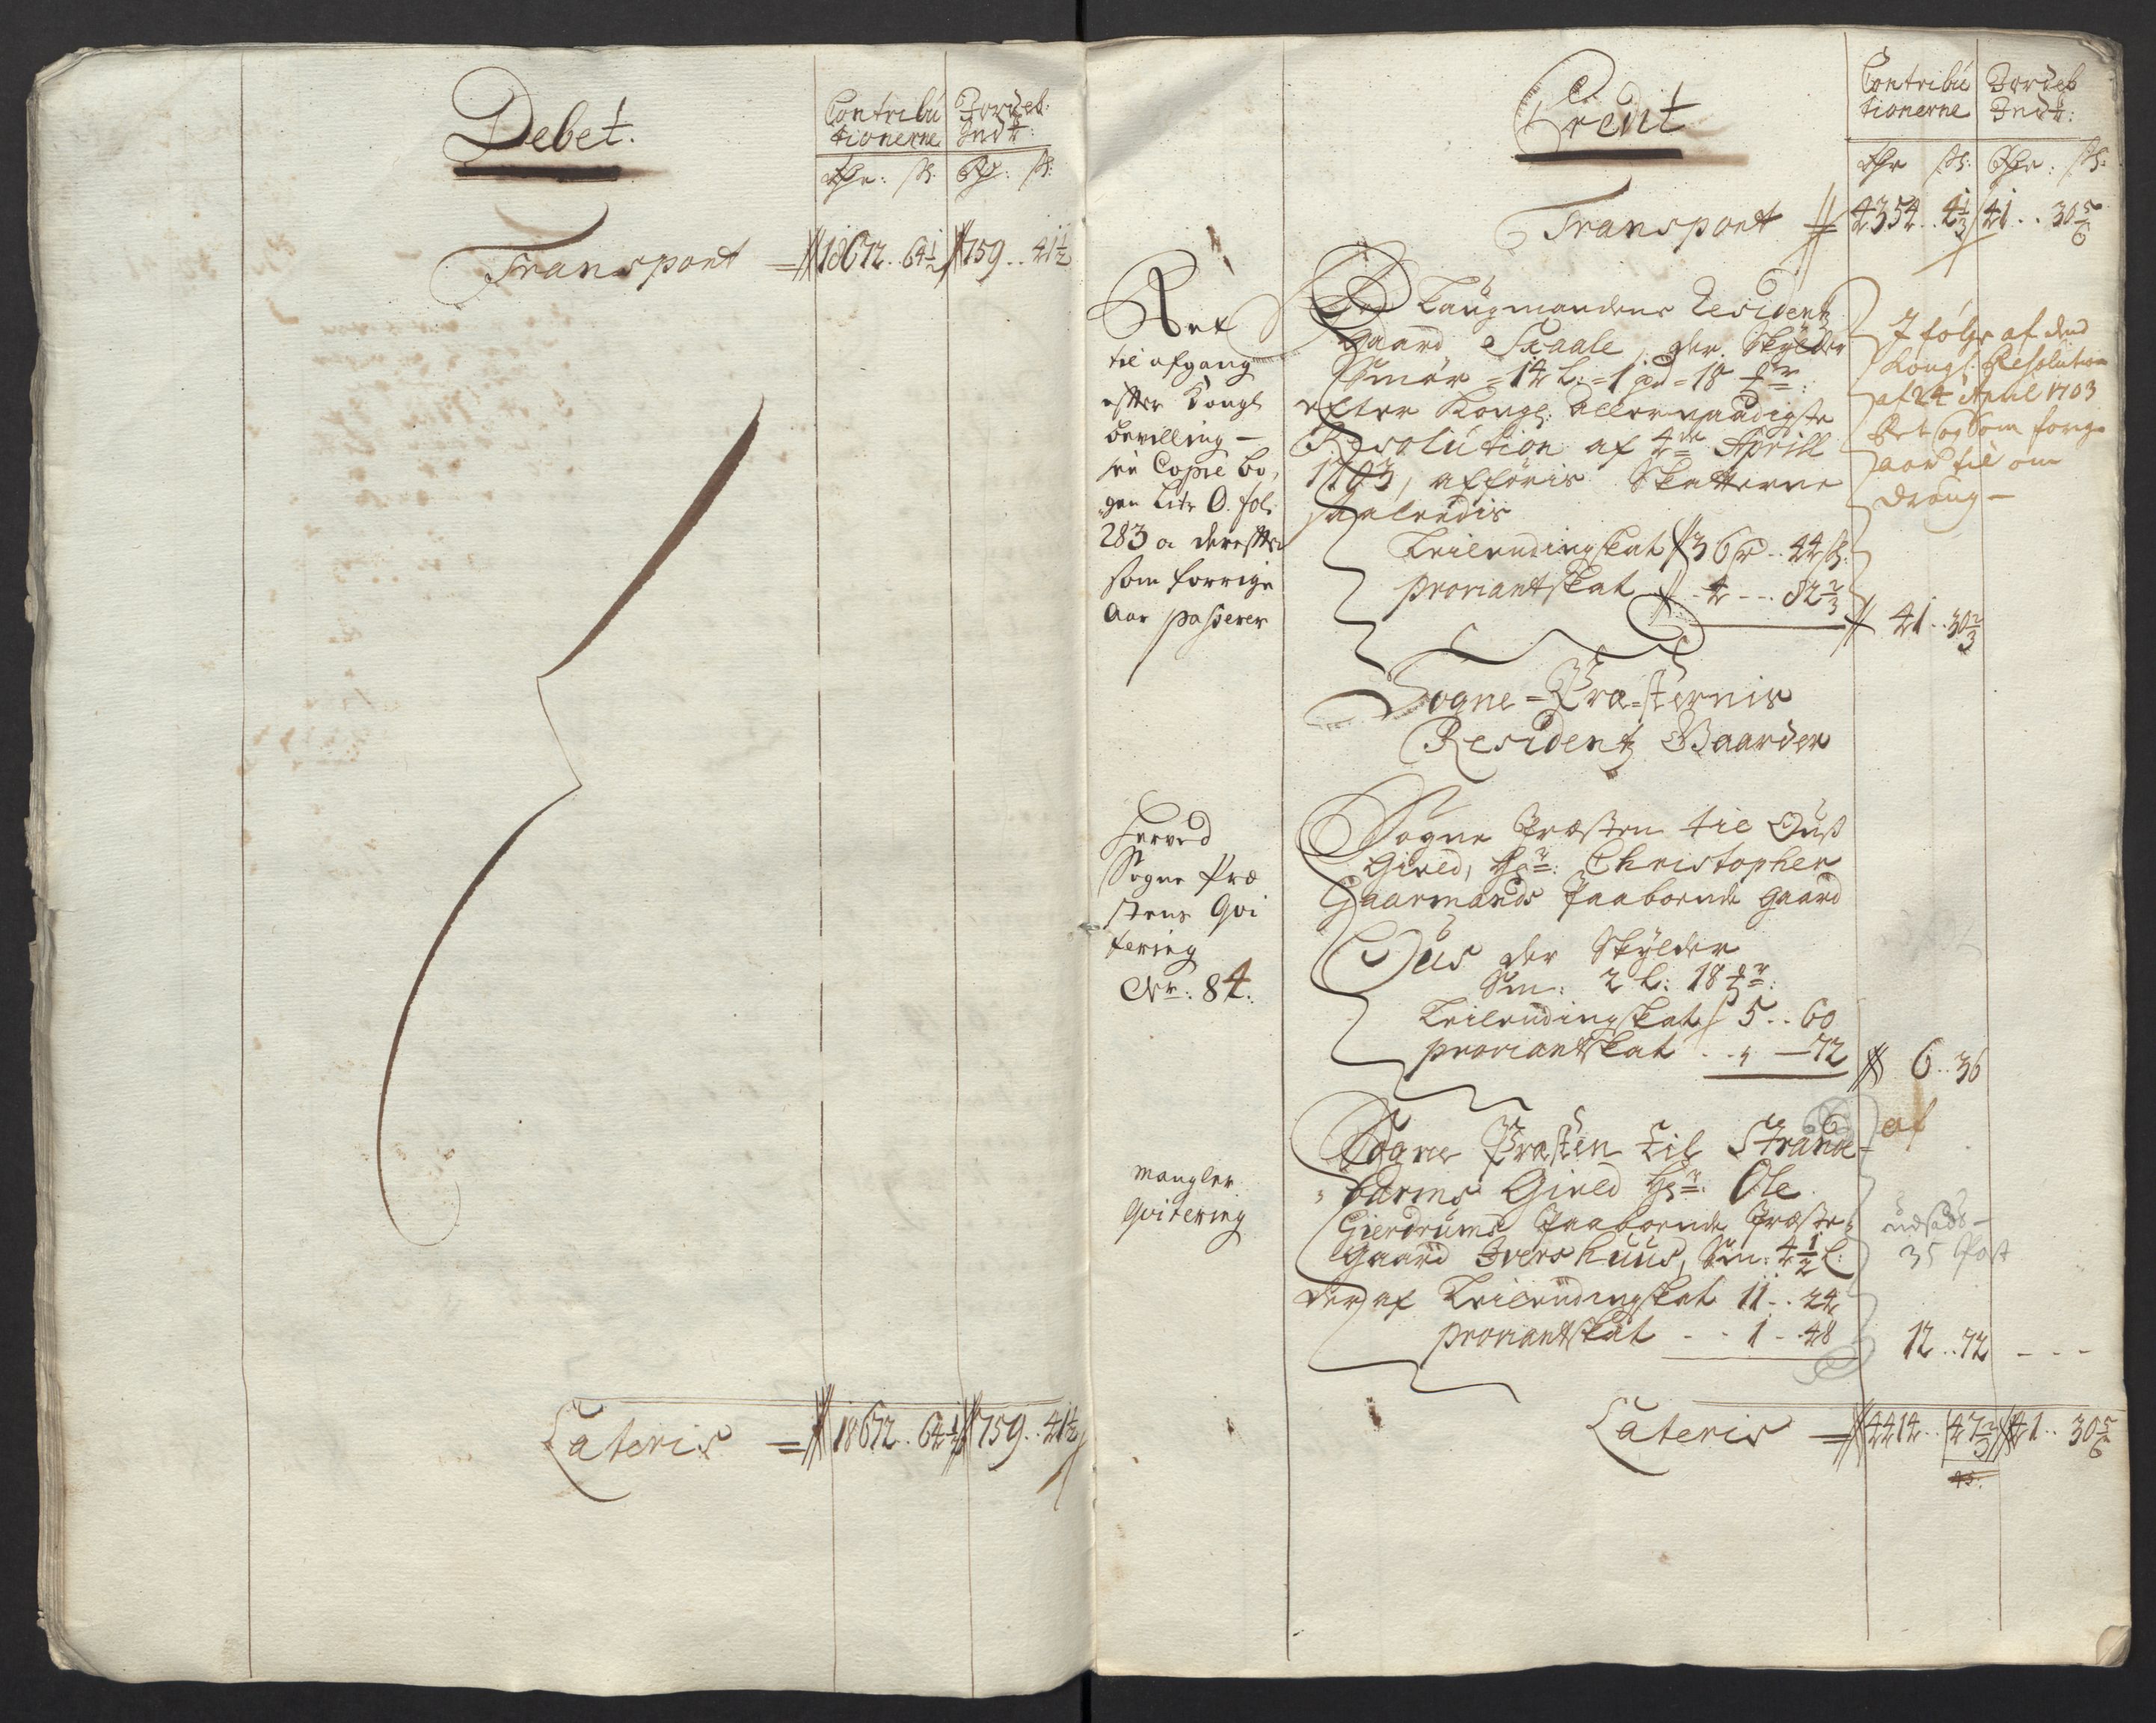 Debet.
Contribu
tionerne
Jordeb:
Indt:
Rdr: ſk: Rd: ſk:
Transport = 18672 .. 64½ 759 .. 41½
Lateris = 18672 .. 64½ 759 .. 41½
Credit
Contribu
tionerne
Jordeb
Indt:
Rdr ſk: Rdr: ſk:
Transport = 4354 .. 4⅓ 41 .. 30 5/6
Ret
til afgang
efter Kongl
bevilling —
see Copie bo,
gen Litr O. fol:
283 a derefter
som forrige
Aar passerer
Laugmandens Residentz
Gaard Skaale, der Skylder
Smør = 14 L: = 1 pd = 18 mr:
efter Kongl: allernaadigste
Resolution af 4de Aprill
1703, afføris Skatterne
saaledis
Leilendingskat 36 r .. 44 ſk:
proviantskat .. 4 - - - 82⅔
41 .. 30⅔
I følge af den
Kongl: Resolution
af 24 April 1703
Ret og Som forige
aar til om
drang —
Sogne-Præsternis
Residentz Gaarder
Herved
Sogne Præ
stens Qvi
tering
Nr: 84.
Sogne Præsten til Ous
Gield, Hr: Christopher
Gaarmands Paaboende gaard
Ous der Skylder
Sm: 2 L: 18 mr:
Leilendingskat 5 .. 60
proviantskat .. „ — 72
6 .. 36
Mangler
Qvitering
Sogne Præsten til Strand
barms Gield Hr: Ole
Gierdrums Paaboende Præste
gaard Ivershuus, Sm: 4½ L:
der af Leilendingskat 11 .. 24
proviantskat - - 1 - .48
12 .. 72 - - -
af
udsadt —
35 Post
Lateris = 4414 .. 47⅔ 41 .. 30 5/6